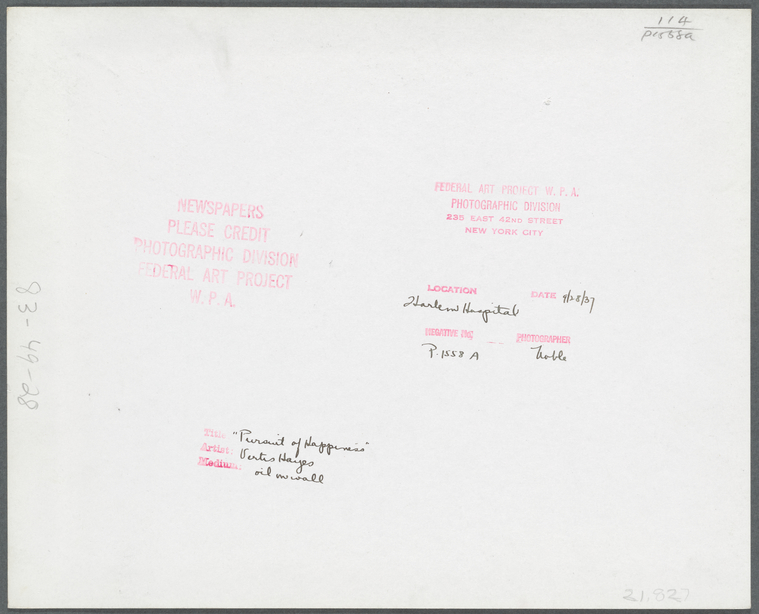 114
P1558a
NEWSPAPERS
PLEASE CREDIT
PHOTOGRAPHIC DIVISION
FEDERAL ART PROJECT
W. P. A.
FEDERAL ART PROJECT W. P. A.
PHOTOGRAPHIC DIVISION
235 EAST 42ND STREET
NEW YORK CITY
LOCATION DATE 9/28/37
Harlem Hospital
NEGATIVE NO. PHOTOGRAPHER
P.1558 A Noble
83-49-28
Title: "Pursuit of Happiness"
Artist: Vertis Hayes
Medium: oil on wall
21.827